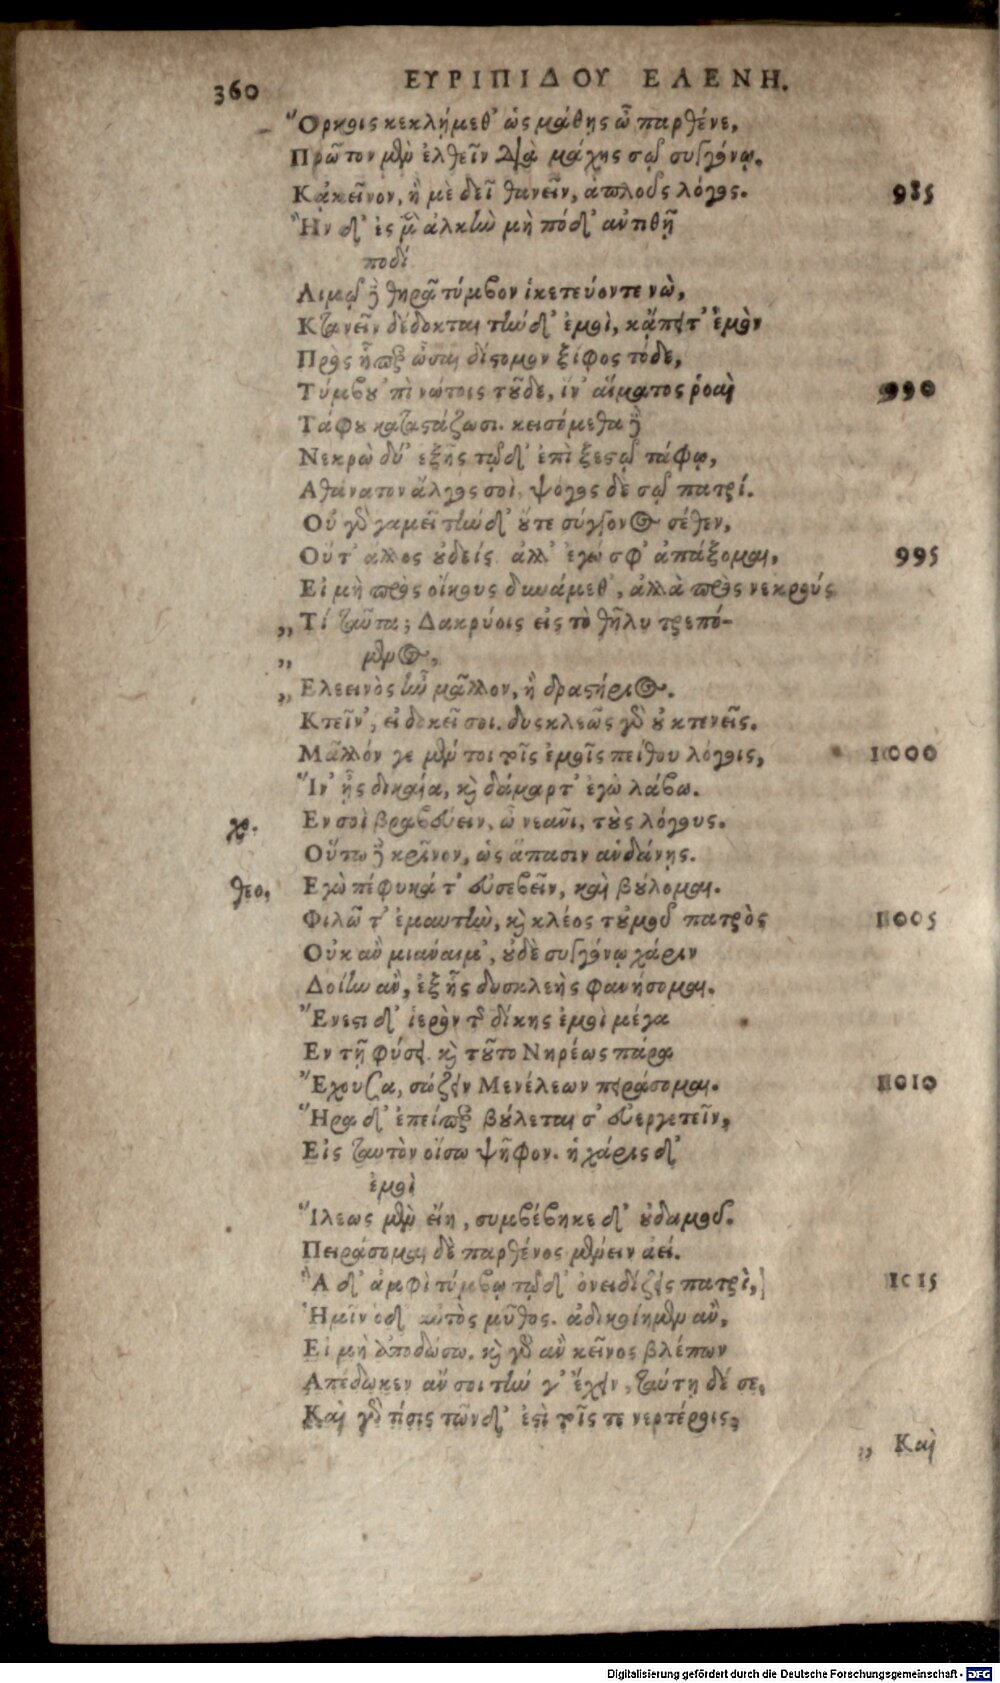 360 ΕΥΡΙΠΙΔΟΥ ΕΛΕΝΗ.
Ὅρκοις κεκλήμεθ' ὡς μάθῃς ὦ παρθένε,
Πρῶτον μὲν ἐλθεῖν διὰ μάχης σῷ συγγόνῳ.
Κἀκεῖνον, ἢ μὲ δεῖ θανεῖν, ἁπλοῦς λόγος. 985
Ἢν δ' ἐς μὲν ἀλκὴν μὴ πόδ' ἀντιθῇ
ποδὶ
Λιμῷ δὲ θηρᾷ τύμβον ἱκετεύοντε νὼ,
Κτανεῖν δέδοκται τήνδ' ἐμοὶ, κἄπειτ' ἐμὸν
Πρὸς ἧπαρ ὦσαι δίστομον ξίφος τόδε,
Τύμβου 'πὶ νώτοις τοῦδε, ἵν' αἵματος ῥοαὶ 990
Τάφου καταστάζωσι. κεισόμεθα δὲ
Νεκρὼ δύ' ἑξῆς τῷδ' ἐπὶ ξεστῷ τάφῳ,
Αθάνατον ἄλγος σοὶ, ψόγος δὲ σῷ πατρί.
Οὐ γὰρ γαμεῖ τήνδ' οὔτε σύγγονος σέθεν,
Οὔτ' ἄλλος οὐδείς ἀλλ' ἐγώ σφ' ἀπάξομαι, 995
Εἰ μὴ πρὸς οἴκους δυνάμεθ', ἀλλὰ πρὸς νεκρούς
„ Τί ταῦτα; Δακρύοις εἰς τὸ θῆλυ τρεπό-
„ μενος,
„ Ελεεινὸς ἦν μᾶλλον, ἢ δραστήριος.
Κτεῖν', εἰ δοκεῖ σοι. δυσκλεῶς γὰρ οὐ κτενεῖς.
Μᾶλλόν γε μέν τοι τοῖς ἐμοῖς πείθου λόγοις, 1000
Ἵν' ᾖς δικαία, καὶ δάμαρτ' ἐγὼ λάβω.
χο. Εν σοὶ βραβεύειν, ὦ νεᾶνι, τοὺς λόγους.
Οὕτω δὲ κρῖνον, ὡς ἅπασιν ἁνδάνῃς.
θεο. Εγὼ πέφυκά τ' εὐσεβεῖν, καὶ βούλομαι.
Φιλῶ τ' ἐμαυτὴν, καὶ κλέος τοὐμοῦ πατρὸς 1005
Οὐκ ἂν μιάναιμ', οὐδὲ συγγόνῳ χάριν
Δοίην ἂν, ἐξ ἧς δυσκλεὴς φανήσομαι.
Ἔνεστι δ' ἱερὸν τῆς δίκης ἐμοὶ μέγα
Εν τῇ φύσει. καὶ τοῦτο Νηρέως πάρα
Ἔχουσα, σώζειν Μενέλεων πειράσομαι. 1010
Ἥρα δ' ἐπείπερ βούλεται σ' εὐεργετεῖν,
Εἰς ταυτὸν οἴσω ψῆφον. ἡ χάρις δ'
ἐμοὶ
Ἵλεως μὲν εἴη, συμβέβηκε δ' οὐδαμοῦ.
Πειράσομαι δὲ παρθένος μένειν ἀεί.
Ἃ δ' ἀμφὶ τύμβῳ τῷδ' ὀνειδίζεις πατρὶ, 1015
Ἡμῖν ὅδ' αὑτὸς μῦθος. ἀδικοίημεν ἂν,
Εἰ μὴ ἀποδώσω. καὶ γὰρ ἂν κεῖνος βλέπων
Απέδωκεν ἄν σοι τήν γ' ἔχειν, ταύτῃ δέ σε,
Καὶ γὰρ τίσις τῶνδ' ἐστὶ τοῖς τε νερτέροις,
„ Καὶ
Digitalisierung gefördert durch die Deutsche Forschungsgemeinschaft - DFG